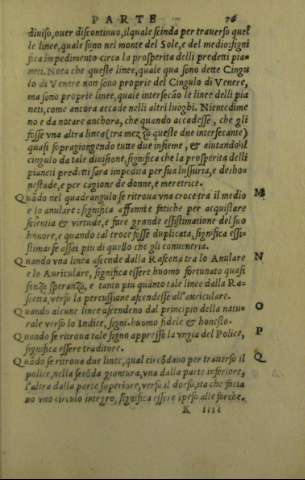 PARTE 76
diuiso, ouer discontinuo, ilquale scinda per trauerso quel
le linee, quale sono nel monte del Sole, e del medio: signi
fica impedimento circa la prosperita delli predetti pia-
neti. Nota che queste linee, quale qua sono dette Cingu
lo di Venere non sono proprie del Cingulo di Venere,
ma sono proprie linee, quale intersecão le linee delli pia
neti, come ancora accade nelli altri luoghi. Nientedime
no e da notare anchora, che quando accadesse, che gli
fosse vna altra linea (tra mezzo queste due intersecante)
quasi sopragiongendo tutte due insieme, & aiutando il
cingulo da tale diuisione, significa che la prosperita delli
pianeti predetti sara impedita per sua lussuria, e dishon
nestade, e per cagione de donne, e meretrice.
Quãdo nel quadrangulo se ritroua vna croce tra il medio M
e lo anulare: significa affanni & fatiche per acquistare
scientia & virtude, e fare grande essistimatione del suo
honore, e quando tal croce fosse duplicata, significa essi-
stimarse assai piu di quello che gli conueneria.
Quando vna linea ascende dalla Rascena tra lo Anulare N
e lo Auriculare, significa essere huomo fortunato quasi
senza speranza, e tanto piu quanto tale linea dalla Ra-
scena, verso la percussione ascendesse all'auriculare.
Quando alcune linee ascendeno dal principio della natu- O
rale verso lo Indice, signi. huomo fidele & honesto.
Quando se ritroua tale signo appresso la vngia del Police, P
significa essere traditore.
Quãdo se ritroua due linee, qual circõdano per trauerso il Q
police, nella secõda giontura, vna dalla parte inferiore,
l'altra dalla parte superiore, verso il dorso, ita che facia
no vno circulo integro, significa essere speso alle forche.
K iiii